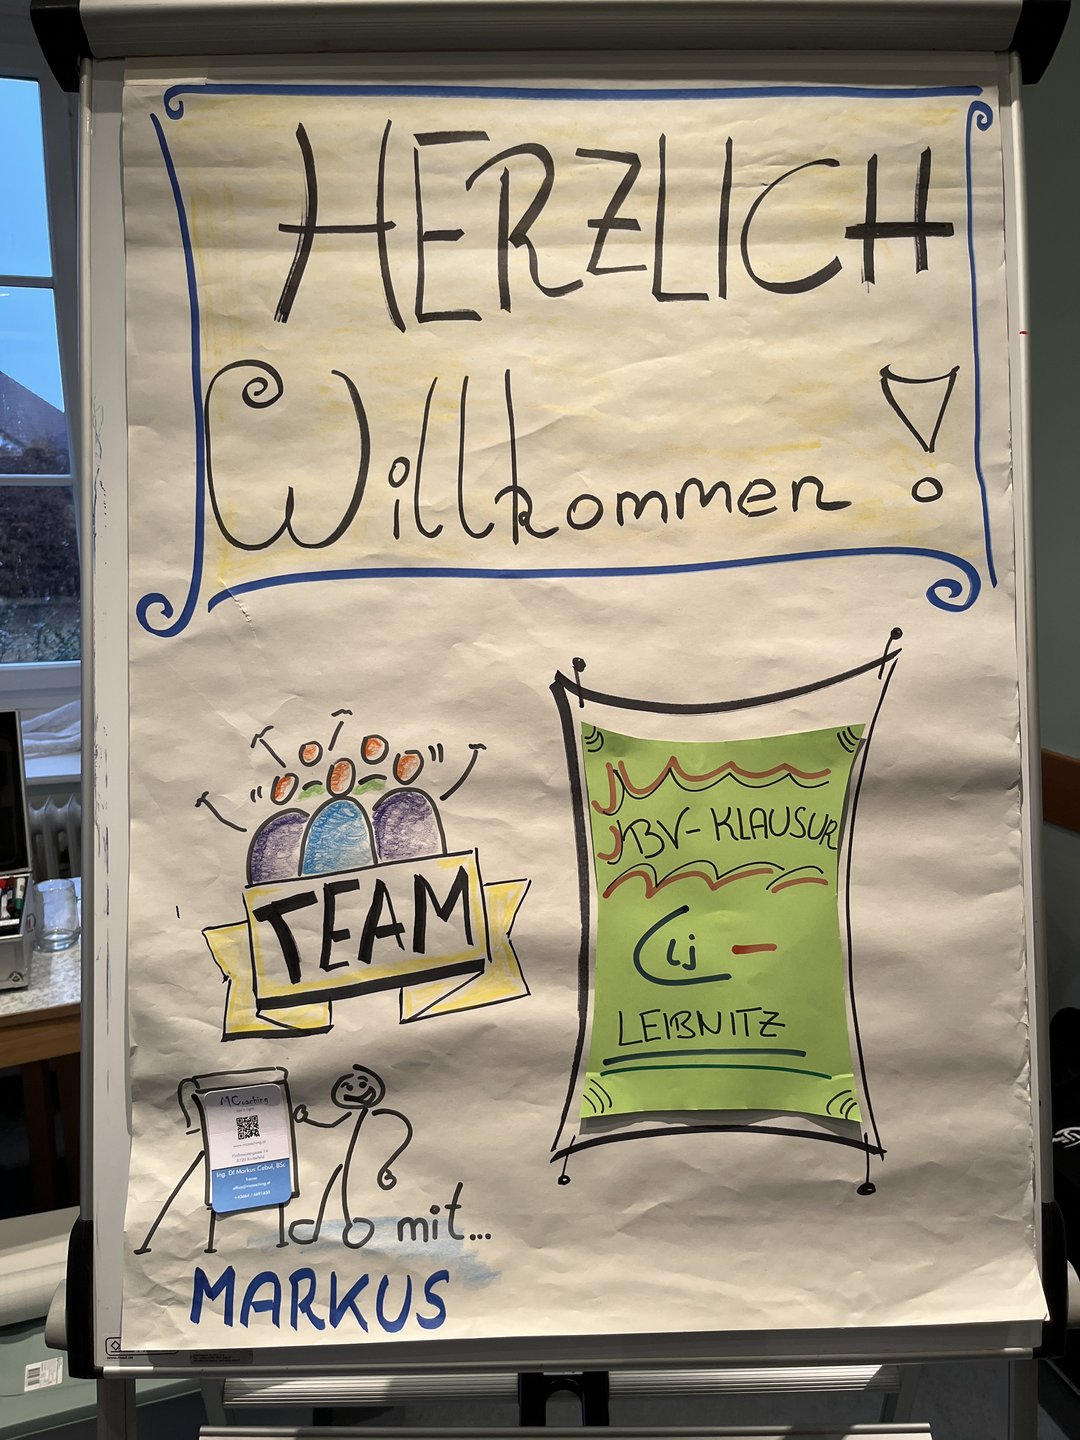 HERZLICH
Willkommen!
TEAM
KBV-KLAUSUR
LJ -
LEIBNITZ
MCoaching
Ing. DI Markus Cebul, BSc
Trainer
mit...
MARKUS